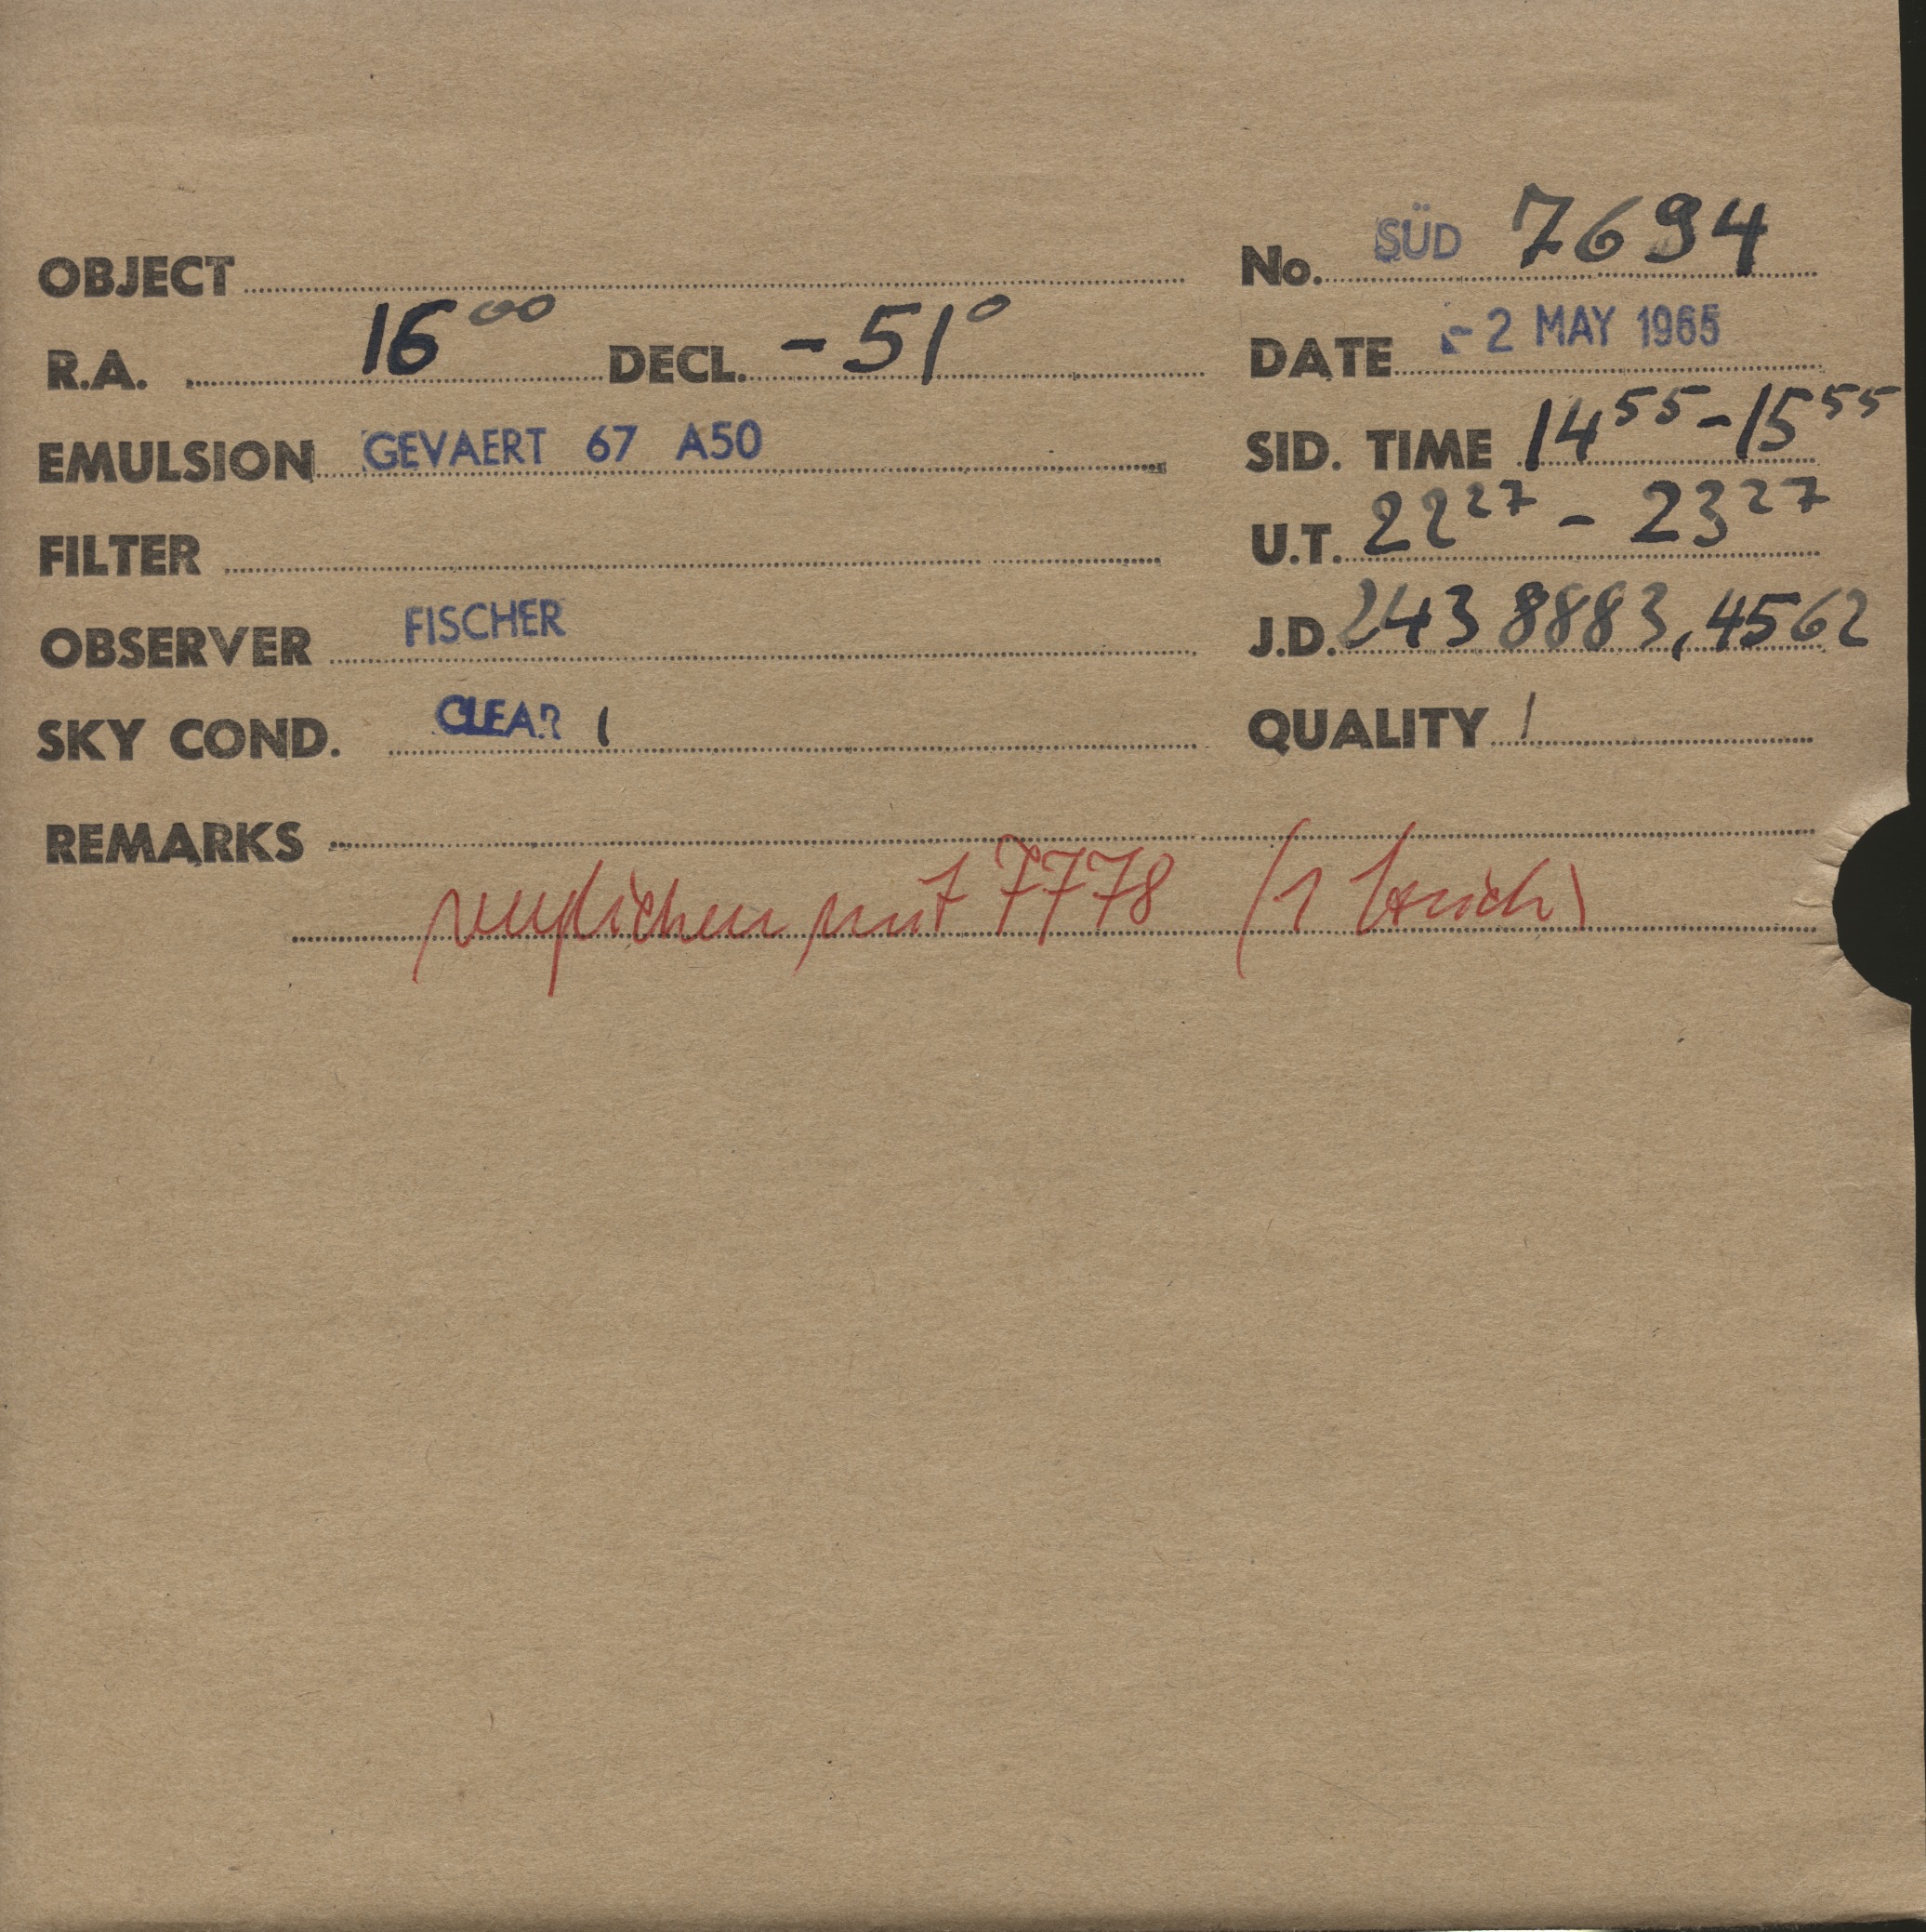 OBJECT No. SÜD 7694
R.A. 16⁰⁰ DECL. -51° DATE -2 MAY 1965
EMULSION GEVAERT 67 A50 SID. TIME 14⁵⁵-15⁵⁵
FILTER U.T. 22²⁷ - 23²⁷
OBSERVER FISCHER J.D. 243 8883,4562
SKY COND. CLEAR 1 QUALITY 1
REMARKS
verglichen mit 7778 (1